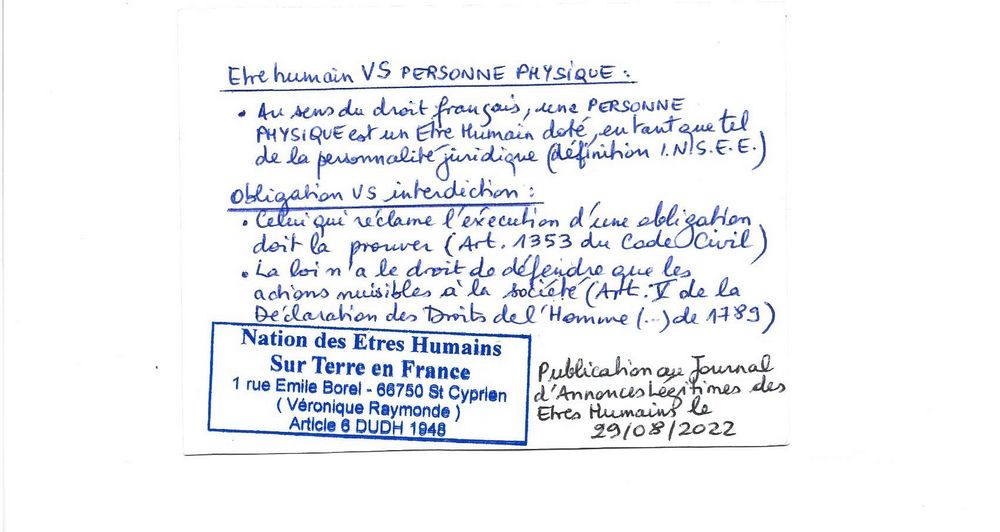 Etre humain VS PERSONNE PHYSIQUE :
• Au sens du droit français, une PERSONNE
PHYSIQUE est un Etre Humain doté, en tant que tel
de la personnalité juridique (définition I.N.S.E.E.)
Obligation VS interdiction :
• Celui qui réclame l'exécution d'une obligation
doit la prouver (Art. 1353 du Code Civil)
• La loi n'a le droit de défendre que les
actions nuisibles à la société (Art. V de la
Déclaration des Droits de l'Homme (...) de 1789)
Nation des Etres Humains
Sur Terre en France
1 rue Emile Borel - 66750 St Cyprien
( Véronique Raymonde )
Article 6 DUDH 1948
Publication au Journal
d'Annonces Légitimes des
Etres Humains le
29/08/2022